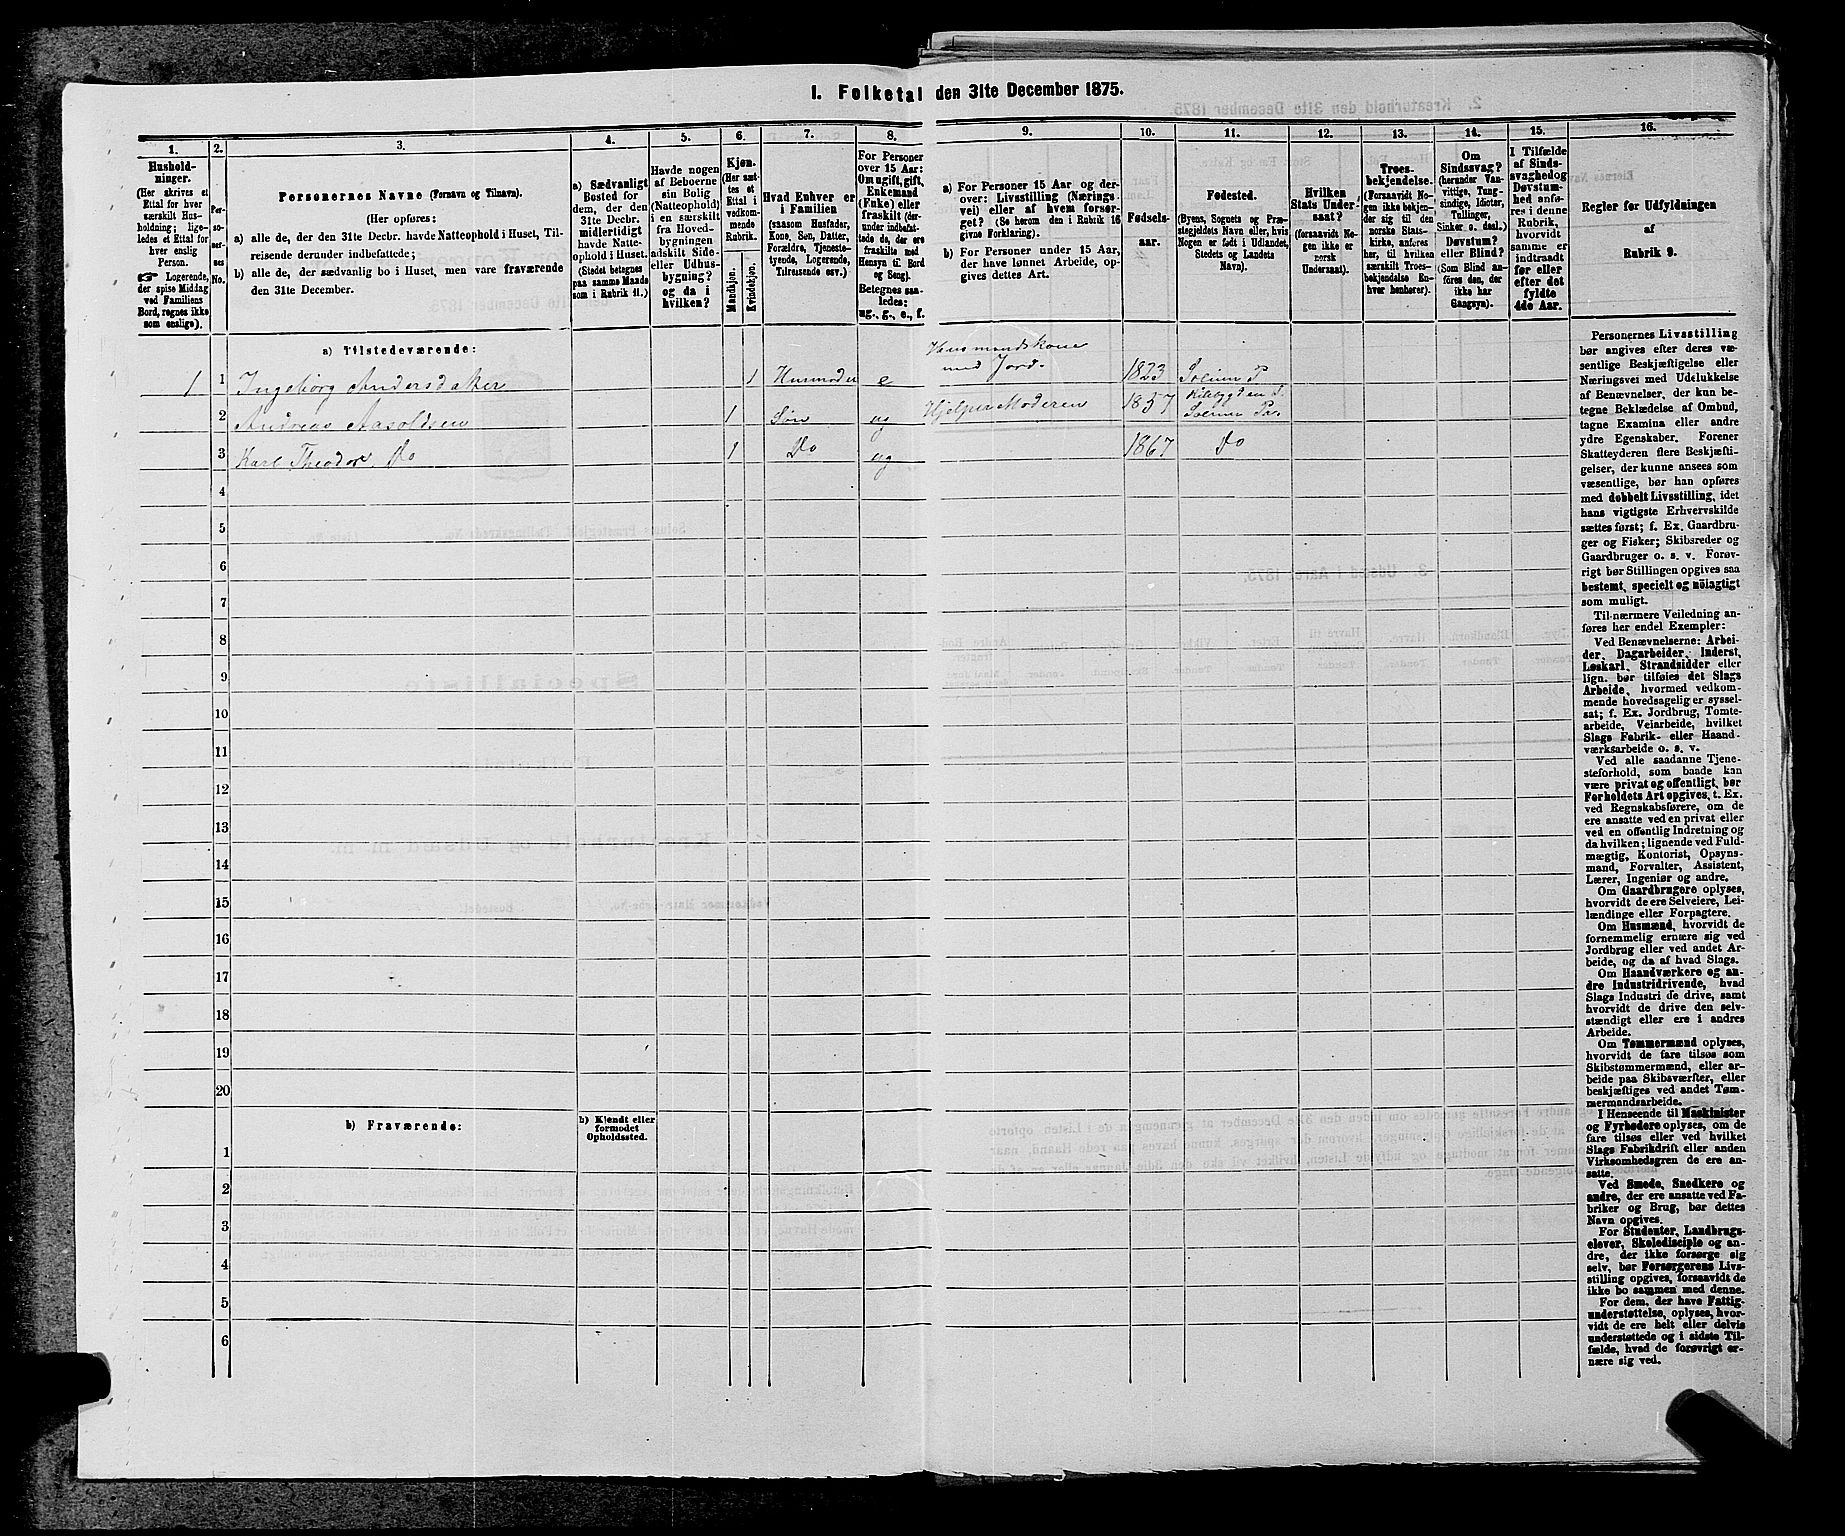 I. Folketal den 31te December 1875.
1. 2. 3. 4. 5. 6. 7. 8. 9. 10. 11. 12. 13. 14. 15. 16.
Hushold-
ninger.
(Her skrives et
Ettal for hver
særskilt Hus-
holdning; lige-
ledes et Ettal for
hver enslig
Person.
☞ Logerende,
der spise Middag
ved Familiens
Bord, regnes ikke
som enslige).
Per-
so-
ner-
nes
No.
Personernes Navne (Fornavn og Tilnavn).
(Her opføres;
a) alle de, der den 31te Decbr. havde Natteophold i Huset, Til-
reisende derunder indbefattede;
b) alle de, der sædvanlig bo i Huset, men vare fraværende
den 31te December.
a) Sædvanligt
Bosted for
dem, der den
31te Decbr.
midlertidigt
havde Natte-
ophold i Huset.
(Stedet betegnes
paa samme Maade
som i Rubrik 11.)
Havde nogen
af Beboerne
sin Bolig
(Natteophold)
i en særskilt
fra Hoved-
bygningen
adskilt Side-
eller Udhus-
bygning?
og da i
hvilken?
Kjøn.
(Her sæt-
tes et
Ettal i
vedkom-
mende
Rubrik.
Mandkjøn.
Kvindekjøn.
Hvad Enhver er
i Familien
(saasom Husfader,
Kone, Søn, Datter,
Forældre, Tjeneste-
tyende, Logerende,
Tilreisende osv.)
For Personer
over 15 Aar:
Om ugift, gift,
Enkemand
(Enke) eller
fraskilt (der-
under indbefat-
tede de, der ere
fraskilte med
Hensyn til Bord
og Seng).
Betegnes saa-
ledes:
ug., g., e., f.
a) For Personer 15 Aar og der-
over: Livsstilling (Nærings-
vei) eller af hvem forsør-
get? (Se herom den i Rubrik 16
givne Forklaring).
b) For Personer under 15 Aar,
der have lønnet Arbeide, op-
gives dettes Art.
Fødsels-
aar.
Fødested.
(Byens, Sognets og Præ-
stegjeldets Navn eller, hvis
Nogen er født i Udlandet,
Stedets og Landets
Navn).
Hvilken
Stats Under-
saat?
(forsaavidt No-
gen ikke er
norsk
Undersaat).
Troes-
bekjendelse.
(Forsaavidt No-
gen ikke bekjen-
der sig til den
norske Stats-
kirke, anføres
her, til hvilken
særskilt Troes-
bekjendelse En-
hver henhører).
Om
Sindssvag?
(herunder Van-
vittige, Tung-
sindige, Idioter,
Tullinger,
Sinker o. desl.)
Døvstum?
eller Blind?
(Som Blind an-
føres den, der
ikke har
Gangsyn).
I Tilfælde
af Sinds-
svaghed og
Døvstum-
hed anfø-
res i denne
Rubrik,
hvorvidt
samme er
indtraadt
før eller
efter det
fyldte
4de Aar.
Regler for Udfyldningen
af
Rubrik 9.
a) Tilstedeværende:
1 1 Ingebørg Andersdatter 1 Husmoder e Husmandskone
med Jord. 1823 Solum P
2 Andreas Aasoldsen 1 Søn ug Hjelper Moderen 1857 Solum Pr.
3 Karl Theodor Do 1 Do ug 1867 Do
4
5
6
7
8
9
10
11
12
13
14
15
16
17
18
19
20
b) Fraværende:
b) Kjendt eller
formodet
Opholdssted.
1
2
3
4
5
6
Personernes Livsstilling
bør angives efter deres væ-
sentlige Beskjæftigelse eller
Næringsvei med Udelukkelse
af Benævnelser, der kun be-
tegne Beklædelse af Ombud,
tagne Examina eller andre
ydre Egenskaber. Forener
Skatteyderen flere Beskjæfti-
gelser, der kunne ansees som
væsentlige, bør han opføres
med dobbelt Livsstilling, idet
hans vigtigste Erhvervskilde
sættes først; f. Ex. Gaardbru-
ger og Fisker; Skibsreder og
Gaardbruger o. s. v. Forøv-
rigt bør Stillingen opgives saa
bestemt, specielt og nöiagtigt
som muligt.
Til nærmere Veiledning an-
føres her endel Exempler:
Ved Benævnelserne: Arbei-
der, Dagarbeider, Inderst,
Løskarl, Strandsidder eller
lign. bør tilføies det Slags
Arbeide, hvormed vedkom-
mende hovedsagelig er syssel-
sat; f. Ex. Jordbrug, Tomte-
arbeide, Veiarbeide, hvilket
Slags Fabrik- eller Haand-
værksarbeide o. s. v.
Ved alle saadanne Tjene-
steforhold, som baade kan
være privat og offentligt, bør
Forholdets Art opgives, t. Ex.
ved Regnskabsførere, om de
ere ansatte ved en privat eller
ved en offentlig Indretning og
da hvilken; lignende ved Fuld-
mægtig, Kontorist, Opsyns-
mand, Forvalter, Assistent,
Lærer, Ingeniør og andre.
Om Gaardbrugere oplyses,
hvorvidt de ere Selveiere, Lei-
lændinge eller Forpagtere.
Om Husmænd, hvorvidt de
fornemmelig ernære sig ved
Jordbrug eller ved andet Ar-
beide, og da af hvad Slags.
Om Haandværkere og an-
dre Industridrivende, hvad
Slags Industri de drive, samt
hvorvidt de drive den selv-
stændigt eller ere i andres
Arbeide.
Om Tømmermænd oplyses,
hvorvidt de fare tilsøs som
Skibstømmermænd, eller ar-
beide paa Skibsværfter, eller
beskjæftiges ved andet Tøm-
mermandsarbeide.
I Henseende til Maskinister
og Fyrbødere oplyses, om de
fare tilsøs eller ved hvilket
Slags Fabrikdrift eller anden
Virksomhedsgren de ere an-
satte.
Ved Smede, Snedkere og
andre, der ere ansatte ved Fa-
briker og Brug, bør dettes
Navn opgives.
For Studenter, Landbrugs-
elever, Skoledisciple og an-
dre, der ikke forsørge sig
selv, bør Forsørgerens Livs-
stilling opgives, forsaavidt de
ikke bo sammen med denne.
For dem, der have Fattig-
understøttelse, oplyses, hvor-
vidt de ere helt eller delvis
understøttede og i sidste Til-
fælde, hvad de forøvrigt er-
nære sig ved.